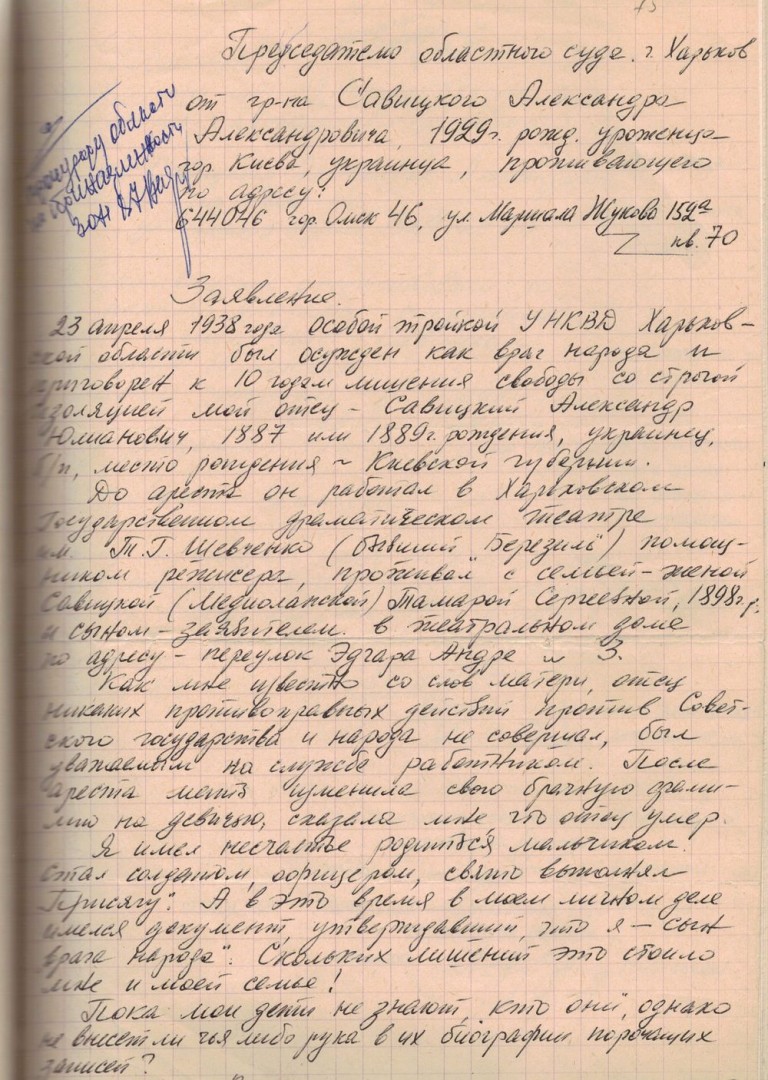 75
Председателю областного суда г. Харьков
от гр-на Савицкого Александра
Александровича, 1929г. рожд. уроженца
гор. Киева, украинца, проживающего
по адресу:
644046 гор. Омск 46, ул. Маршала Жукова 152а
кв. 70
прокурору области
по принадлежности
Заявление.
23 апреля 1938 года особой тройкой УНКВД Харьков-
ской области был осужден как враг народа и
приговорен к 10 годам лишения свободы со строгой
изоляцией мой отец - Савицкий Александр
Юлианович, 1887 или 1889г. рождения, украинец,
б/п, место рождения - Киевской губернии.
До ареста он работал в Харьковском
Государственном драматическом театре
им. Т.Г. Шевченко (бывший "Березиль") помощ-
ником режисера, проживал с семьей - женой
Савицкой (Медиоланской) Тамарой Сергеевной, 1898г.р.
и сыном - заявителем в театральном доме
по адресу - переулок Эдгара Андре 3.
Как мне известно со слов матери, отец
никаких противоправных действий против Совет-
ского государства и народа не совершал, был
уважаемым на службе работником. После
ареста мать изменила свою брачную фами-
лию на девичью, сказала мне что отец умер.
Я имел несчастье родиться мальчиком.
Стал солдатом, офицером, свято выполнял
"Присягу". А в это время в моем личном деле
имелся документ, утверждавший, что я - "сын
врага народа". Скольких лишений это стоило
мне и моей семье!
Пока мои дети не знают, "кто они", однако
не внесет ли чья либо рука в их биографии порочащих
записей?